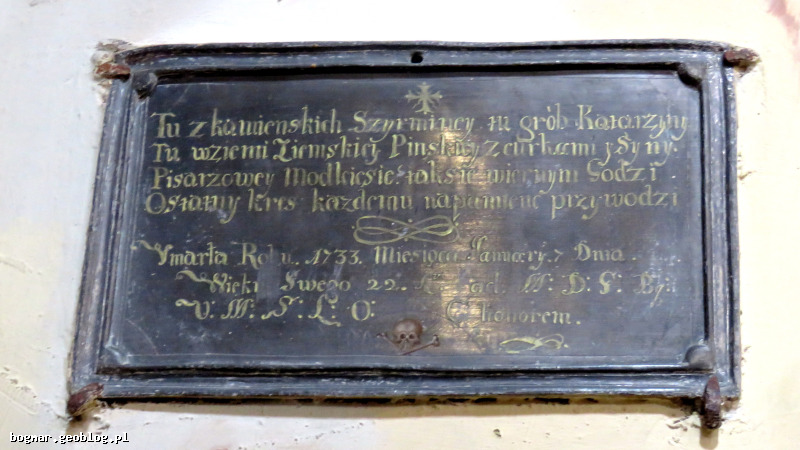 Tu z kamienskich Szyrminey tu grób Katarzyny
Tu wziemi Ziemskiey Pinskiey z curkami y Syny.
Pisarzowey Modlciesie: tak sie wiernym Godzi
Ostatny kres kazdemu napamienc przywodzi
Vmarła Roku. 1733. Miesiąca Januarÿ. 7 Dnia.
Wieku Swego 22. ad. M: D: F: By:
V: M: S: L: O: C honorem.
bognar.geoblog.pl